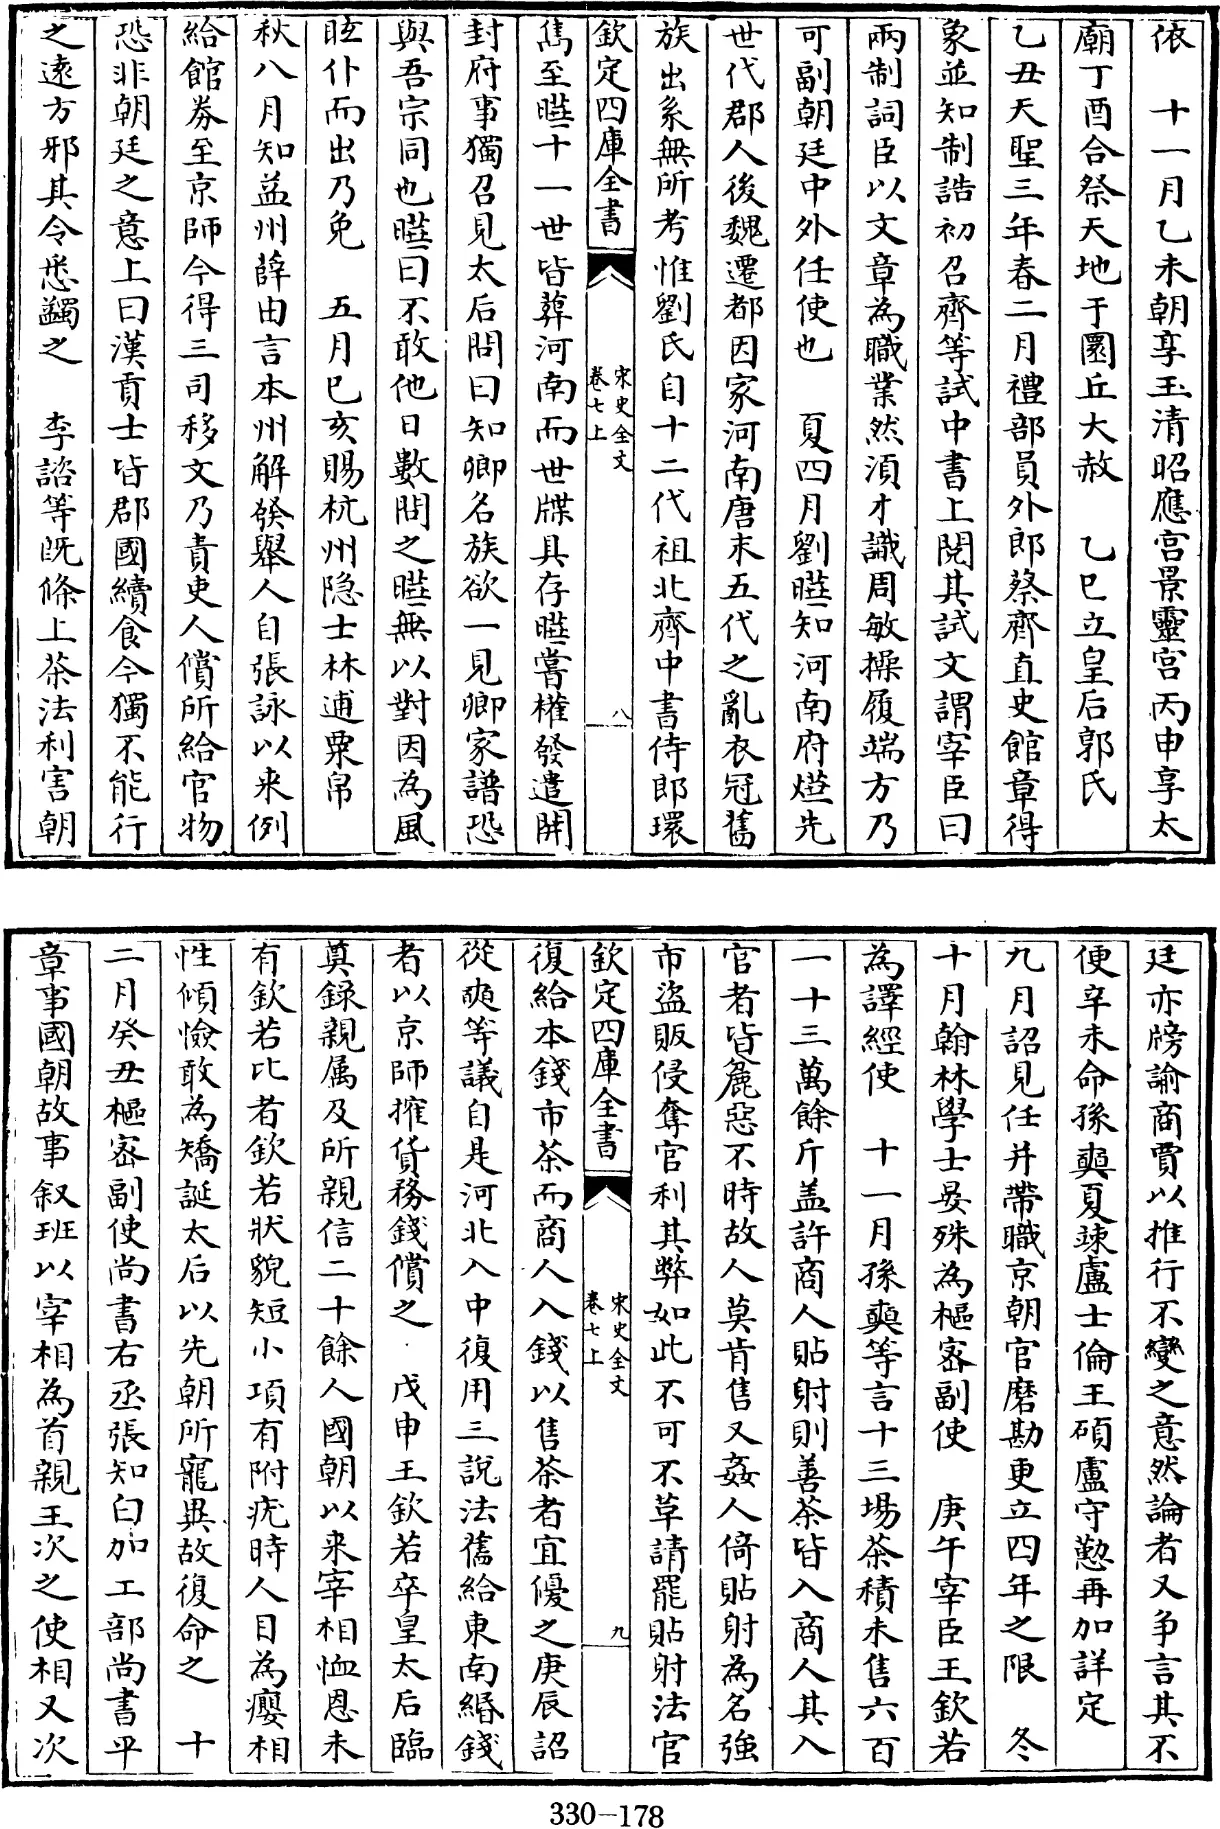 依　十一月乙未朝享玉清昭應宫景靈宫丙申享太
廟丁酉合祭天地于圜丘大赦　乙巳立皇后郭氏
乙丑天聖三年春二月禮部員外郎蔡齊直史館章得
象並知制誥初召齊等試中書上閱其試文謂宰臣曰
兩制詞臣以文章為職業然湏才識周敏操履端方乃
可副朝廷中外任使也　夏四月劉曄知河南府曄先
世代郡人後魏遷都因家河南唐末五代之亂衣冠舊
族出系無所考惟劉氏自十二代祖北齊中書侍郎環
欽定四庫全書
宋史全文
卷七上
八
雋至曄十一世皆葬河南而世牒具存曄嘗權發遣開
封府事獨召見太后問曰知卿名族欲一見卿家譜恐
與吾宗同也曄曰不敢他日數問之曄無以對因為風
眩仆而出乃免　五月巳亥賜杭州隐士林逋粟帛
秋八月知益州薛田言本州解發舉人自張詠以来例
給館券至京師今得三司移文乃責吏人償所給官物
恐非朝廷之意上曰漢貢士皆郡國續食今獨不能行
之遠方邪其令悉蠲之　李諮等既條上茶法利害朝
廷亦牓諭商賈以推行不變之意然論者又争言其不
便辛未命孫奭夏竦盧士倫王碩盧守懃再加詳定
九月詔見任并帶職京朝官磨勘更立四年之限　冬
十月翰林學士晏殊為樞密副使　庚午宰臣王欽若
為譯經使　十一月孫奭等言十三場茶積未售六百
一十三萬餘斤盖許商人貼射則善茶皆入商人其入
官者皆麄惡不時故人莫肯售又姦人倚貼射為名強
市盜販侵奪官利其弊如此不可不革請罷貼射法官
欽定四庫全書
宋史全文
卷七上
九
復給本錢市茶而商人入錢以售茶者宜優之庚辰詔
從奭等議自是河北入中復用三説法舊給東南緡錢
者以京師搉貨務錢償之　戊申王欽若卒皇太后臨
奠録親属及所親信二十餘人國朝以来宰相恤恩未
有欽若比者欽若狀貌短小項有附疣時人目為癭相
性傾憸敢為矯誕太后以先朝所寵異故復命之　十
二月癸丑樞密副使尚書右丞張知白加工部尚書平
章事國朝故事叙班以宰相為首親王次之使相又次
330-178